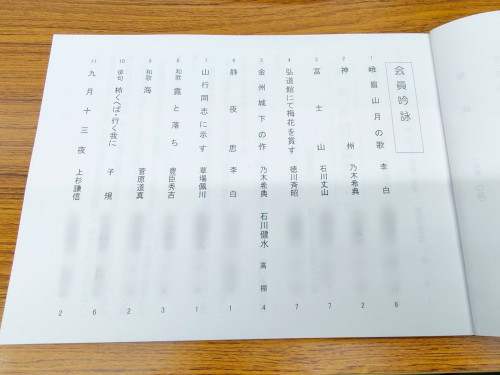 会員吟詠
1 峨眉山月の歌 李白 6
2 神州 乃木希典 2
3 富士山 石川丈山 7
4 弘道館にて梅花を賞す 徳川斉昭 7
5 金州城下の作 乃木希典 石川健水 高棚 4
6 静夜思 李白 1
7 山行同志に示す 草場佩川 1
8 和歌 露と落ち 豊臣秀吉 3
9 和歌 海 菅原道真 2
10 俳句 柿くへば・行く我に 子規 6
11 九月十三夜 上杉謙信 2